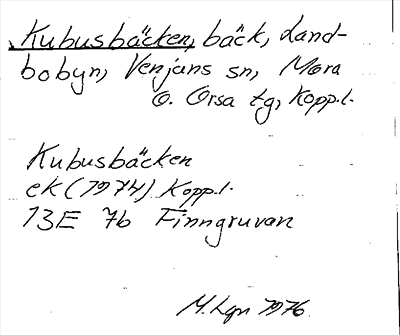 Kubusbäcken, bäck, Land-
bobyn, Venjans sn, Mora
o. Orsa tg, Kopp.l.
Kubusbäcken
ek (1974) Kopp.l.
13E 7b Finngruvan
M. Lgn 1976